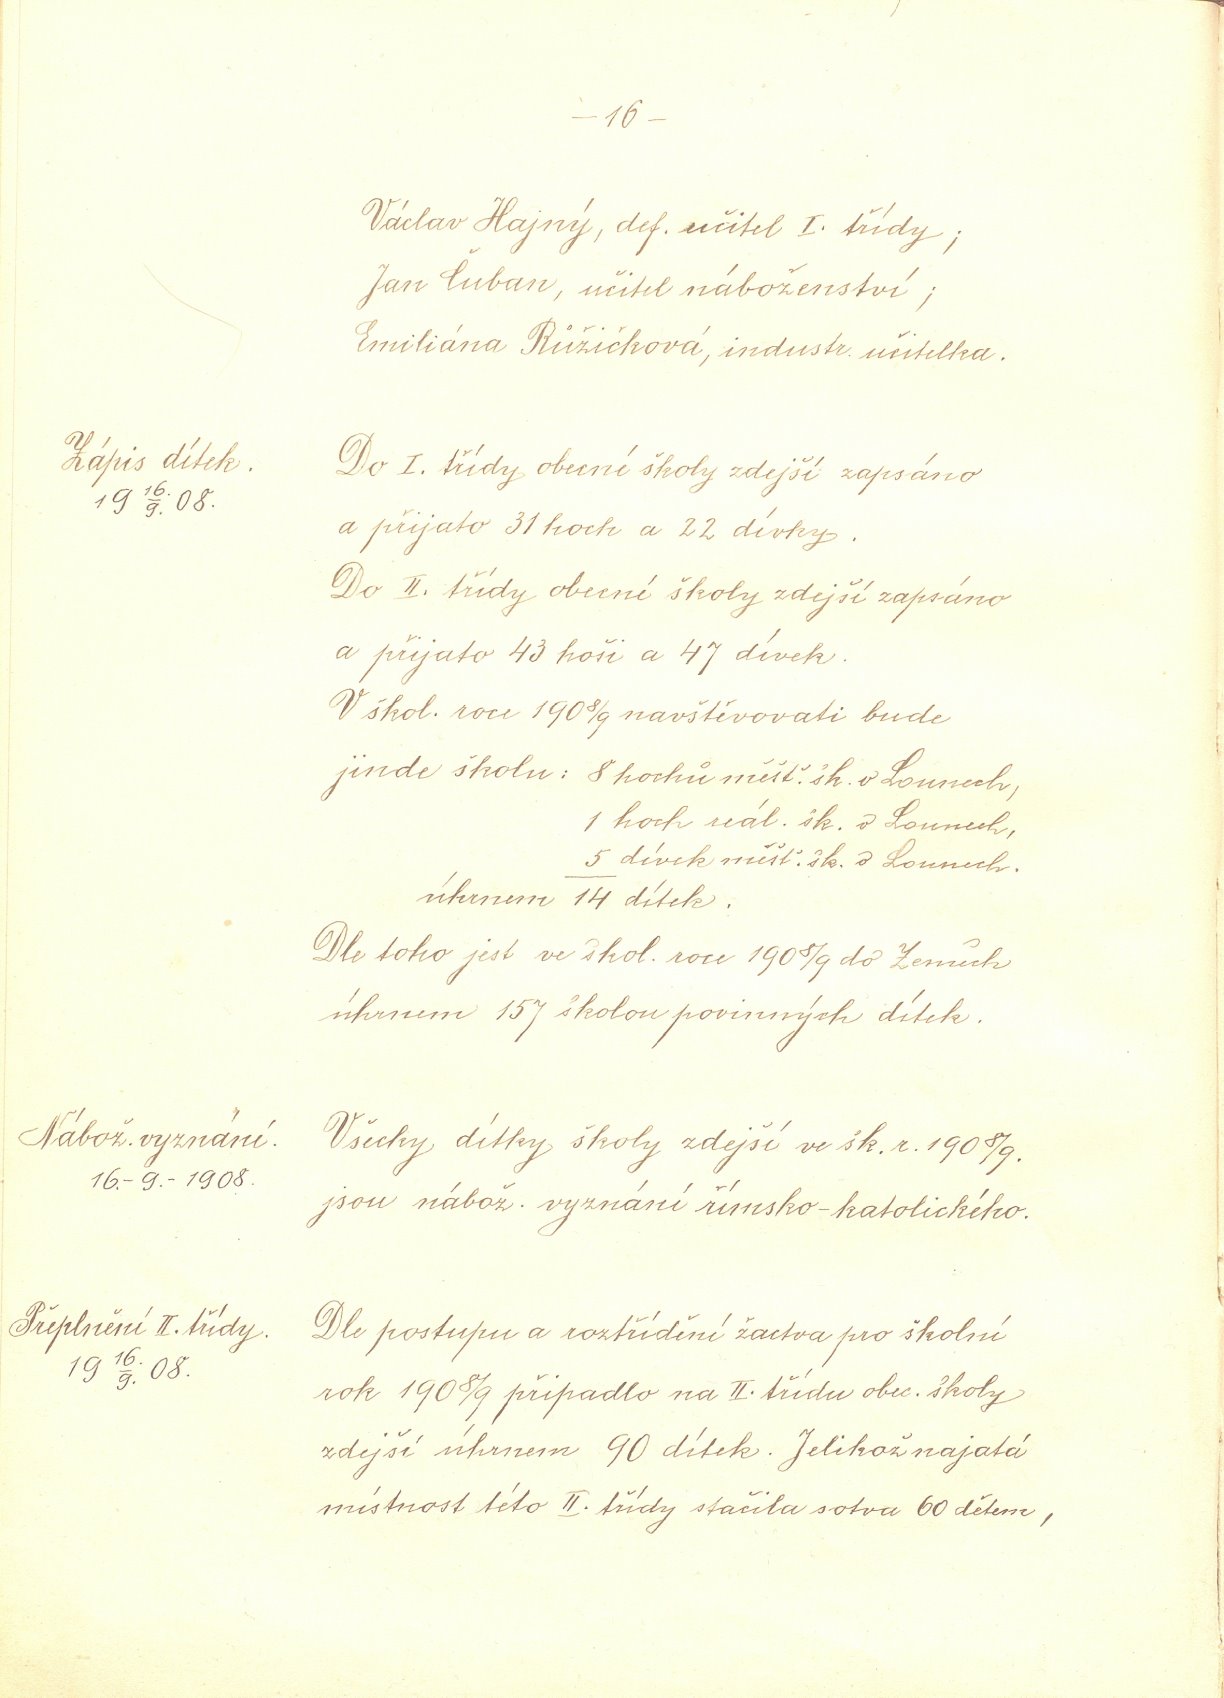 — 16 —
Václav Hajný, def. učitel I. třídy;
Jan Čuban, učitel náboženství;
Emiliána Růžičková, industr. učitelka.
Zápis dítek.
19 16./9. 08.
Do I. třídy obecné školy zdejší zapsáno
a přijato 31 hoch a 22 dívky.
Do II. třídy obecné školy zdejší zapsáno
a přijato 43 hoši a 47 dívek.
V škol. roce 1908/9 navštěvovati bude
jinde školu: 8 hochů měšť. šk. v Lounech,
1 hoch reál. šk. v Lounech,
5 dívek měšť. šk. v Lounech.
úhrnem 14 dítek.
Dle toho jest ve škol. roce 1908/9 do Zeměch
úhrnem 157 školou povinných dítek.
Nábož. vyznání.
16.-9.-1908.
Všecky dítky školy zdejší ve šk. r. 1908/9.
jsou nábož. vyznání římsko-katolického.
Přeplnění II. třídy.
19 16./9. 08.
Dle postupu a roztřídění žactva pro školní
rok 1908/9 připadlo na II. třídu obec. školy
zdejší úhrnem 90 dítek. Jelikož najatá
místnost této II. třídy stačila sotva 60 dětem,